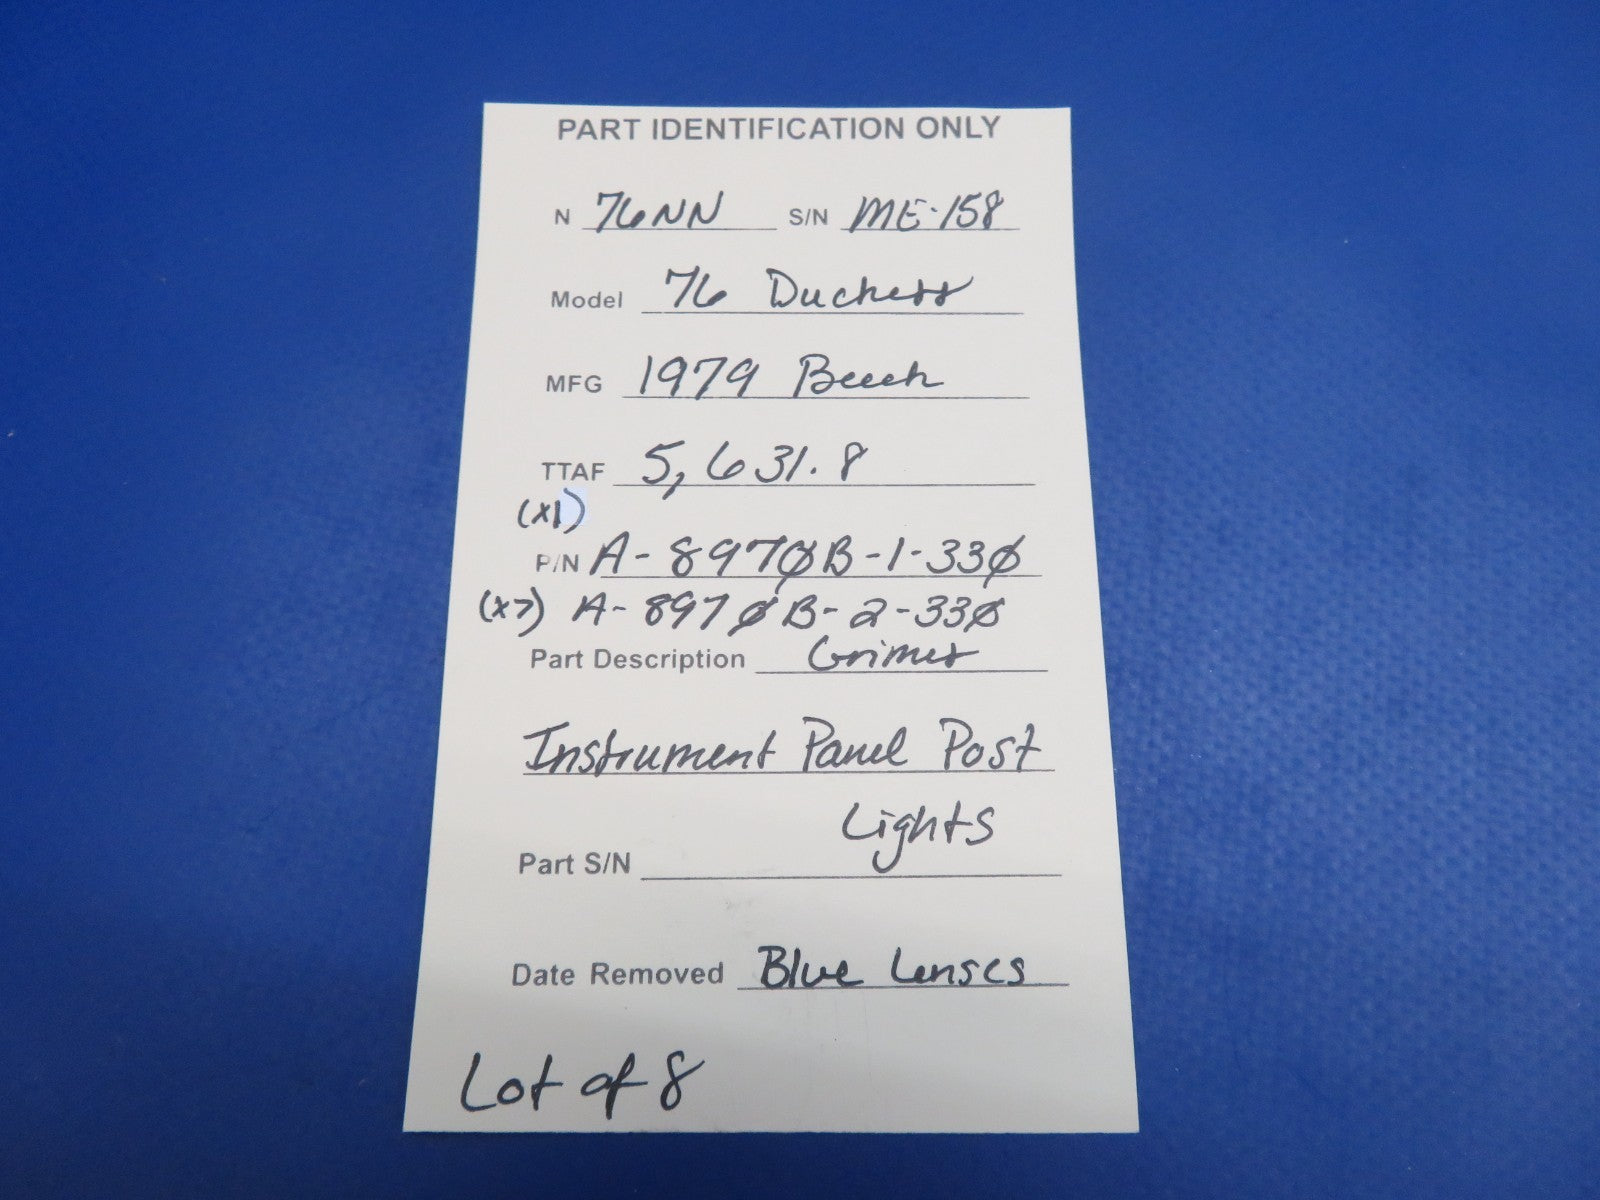 PART IDENTIFICATION ONLY
N 76NN S/N ME-158
Model 76 Duchess
MFG 1979 Beech
TTAF 5,631.8
(x1)
P/N A-8970B-1-330
(x7) A-8970B-2-330
Part Description Grimes
Instrument Panel Post
Lights
Part S/N
Date Removed Blue Lenses
Lot of 8